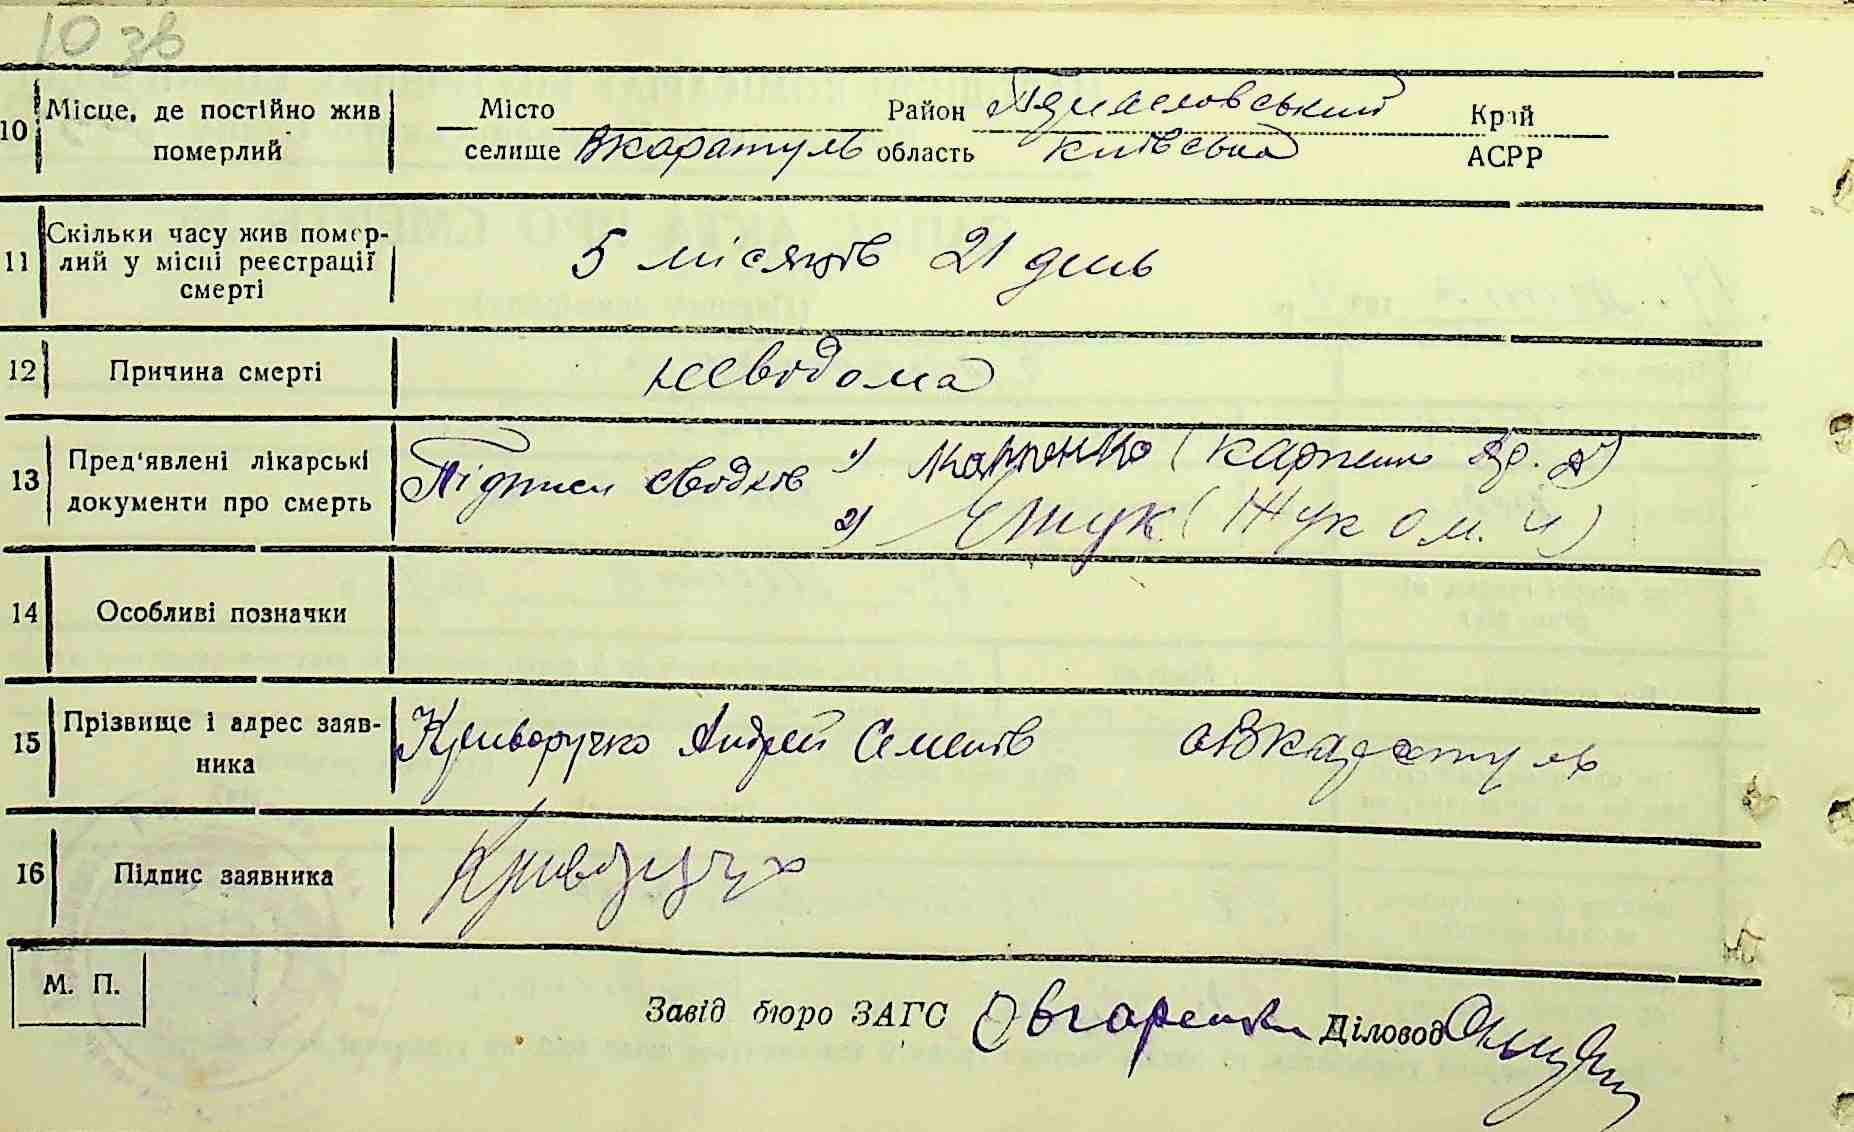 10 зв
10 Місце, де постійно жив померлий
Місто Район Край
селище Вкаратуль область Київська АСРР
11 Скільки часу жив помер-
лий у місці реєстрації
смерті
5 місяців 21 день
12 Причина смерті
невідома
13 Пред'явлені лікарські
документи про смерть
Підписи свідків 1) Карпенко (Карпенко
2) Жук (Жук Ом. И)
14 Особливі позначки
15 Прізвище і адрес заяв-
ника
Криворучко Андрей Семенів
16 Підпис заявника
Криворучко
М. П.
Завід бюро ЗАГС Діловод